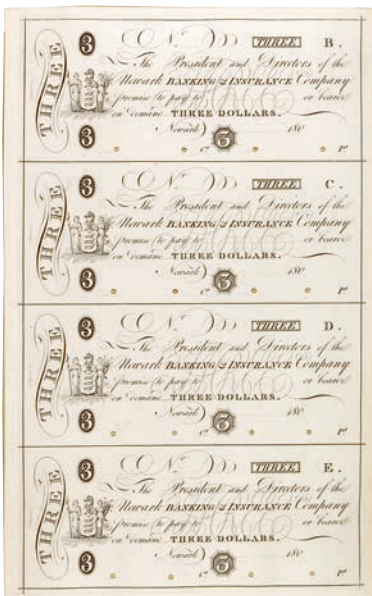 THREE
3
3
No THREE B.
The President and Directors of the
Newark BANKING & INSURANCE Company
promise to pay to or bearer
on demand THREE DOLLARS.
Newark 180
Cr 3 Pt
THREE
3
3
No THREE C.
The President and Directors of the
Newark BANKING & INSURANCE Company
promise to pay to or bearer
on demand THREE DOLLARS.
Newark 180
Cr 3 Pt
THREE
3
3
No THREE D.
The President and Directors of the
Newark BANKING & INSURANCE Company
promise to pay to or bearer
on demand THREE DOLLARS.
Newark 180
Cr 3 Pt
THREE
3
3
No THREE E.
The President and Directors of the
Newark BANKING & INSURANCE Company
promise to pay to or bearer
on demand THREE DOLLARS.
Newark 180
Cr 3 Pt